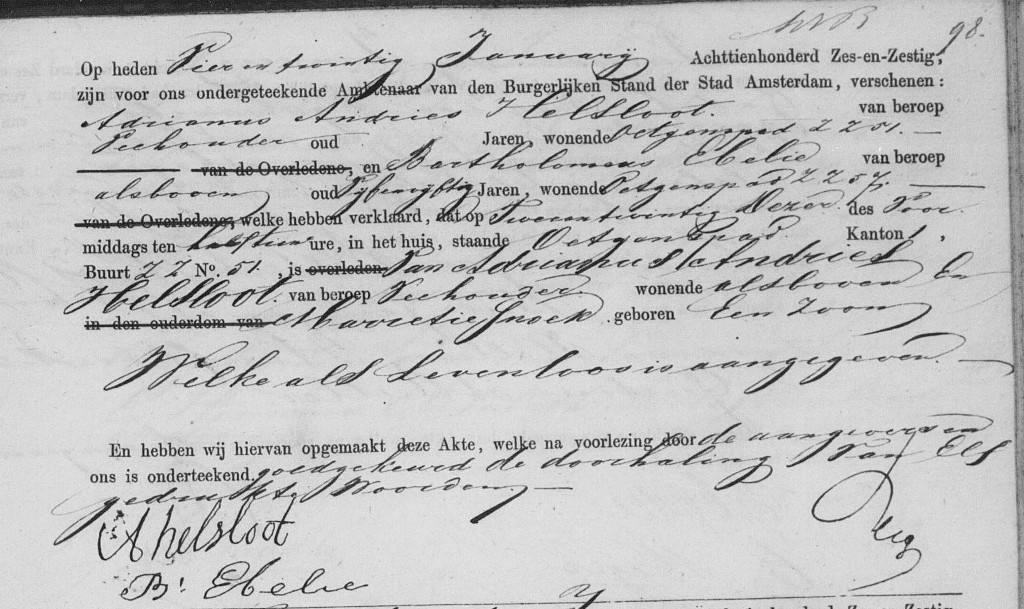 98.
Op heden Vier en twintig January Achttienhonderd Zes-en-Zestig,
zijn voor ons ondergeteekende Ambtenaar van den Burgerlijken Stand der Stad Amsterdam, verschenen:
Adrianus Andries Helsloot. van beroep
Veehouder oud Jaren, wonende Oetgenspad ZZ 51.
van de Overledene, en Bartholomeus Ebelie van beroep
alsboven oud Vyfenvyftig Jaren, wonende Oetgenspad ZZ 57.
van de Overledene, welke hebben verklaard, dat op Tweeentwintig Dezer des Voor
middags ten half tien ure, in het huis, staande Oetgenspad Kanton 1,
Buurt ZZ No. 51, is overleden Van Adrianus Andries
Helsloot. van beroep Veehouder. wonende alsboven En
in den ouderdom van Marretie Snoek geboren Een Zoon
Welke als Levenloos is aangegeven.
En hebben wij hiervan opgemaakt deze Akte, welke na voorlezing door de aangevers en
ons is onderteekend. goedgekeurd de doorhaling Van Elf
gedrukte Woorden
A helsloot
B. Ebelie
Zes-en-Zestig